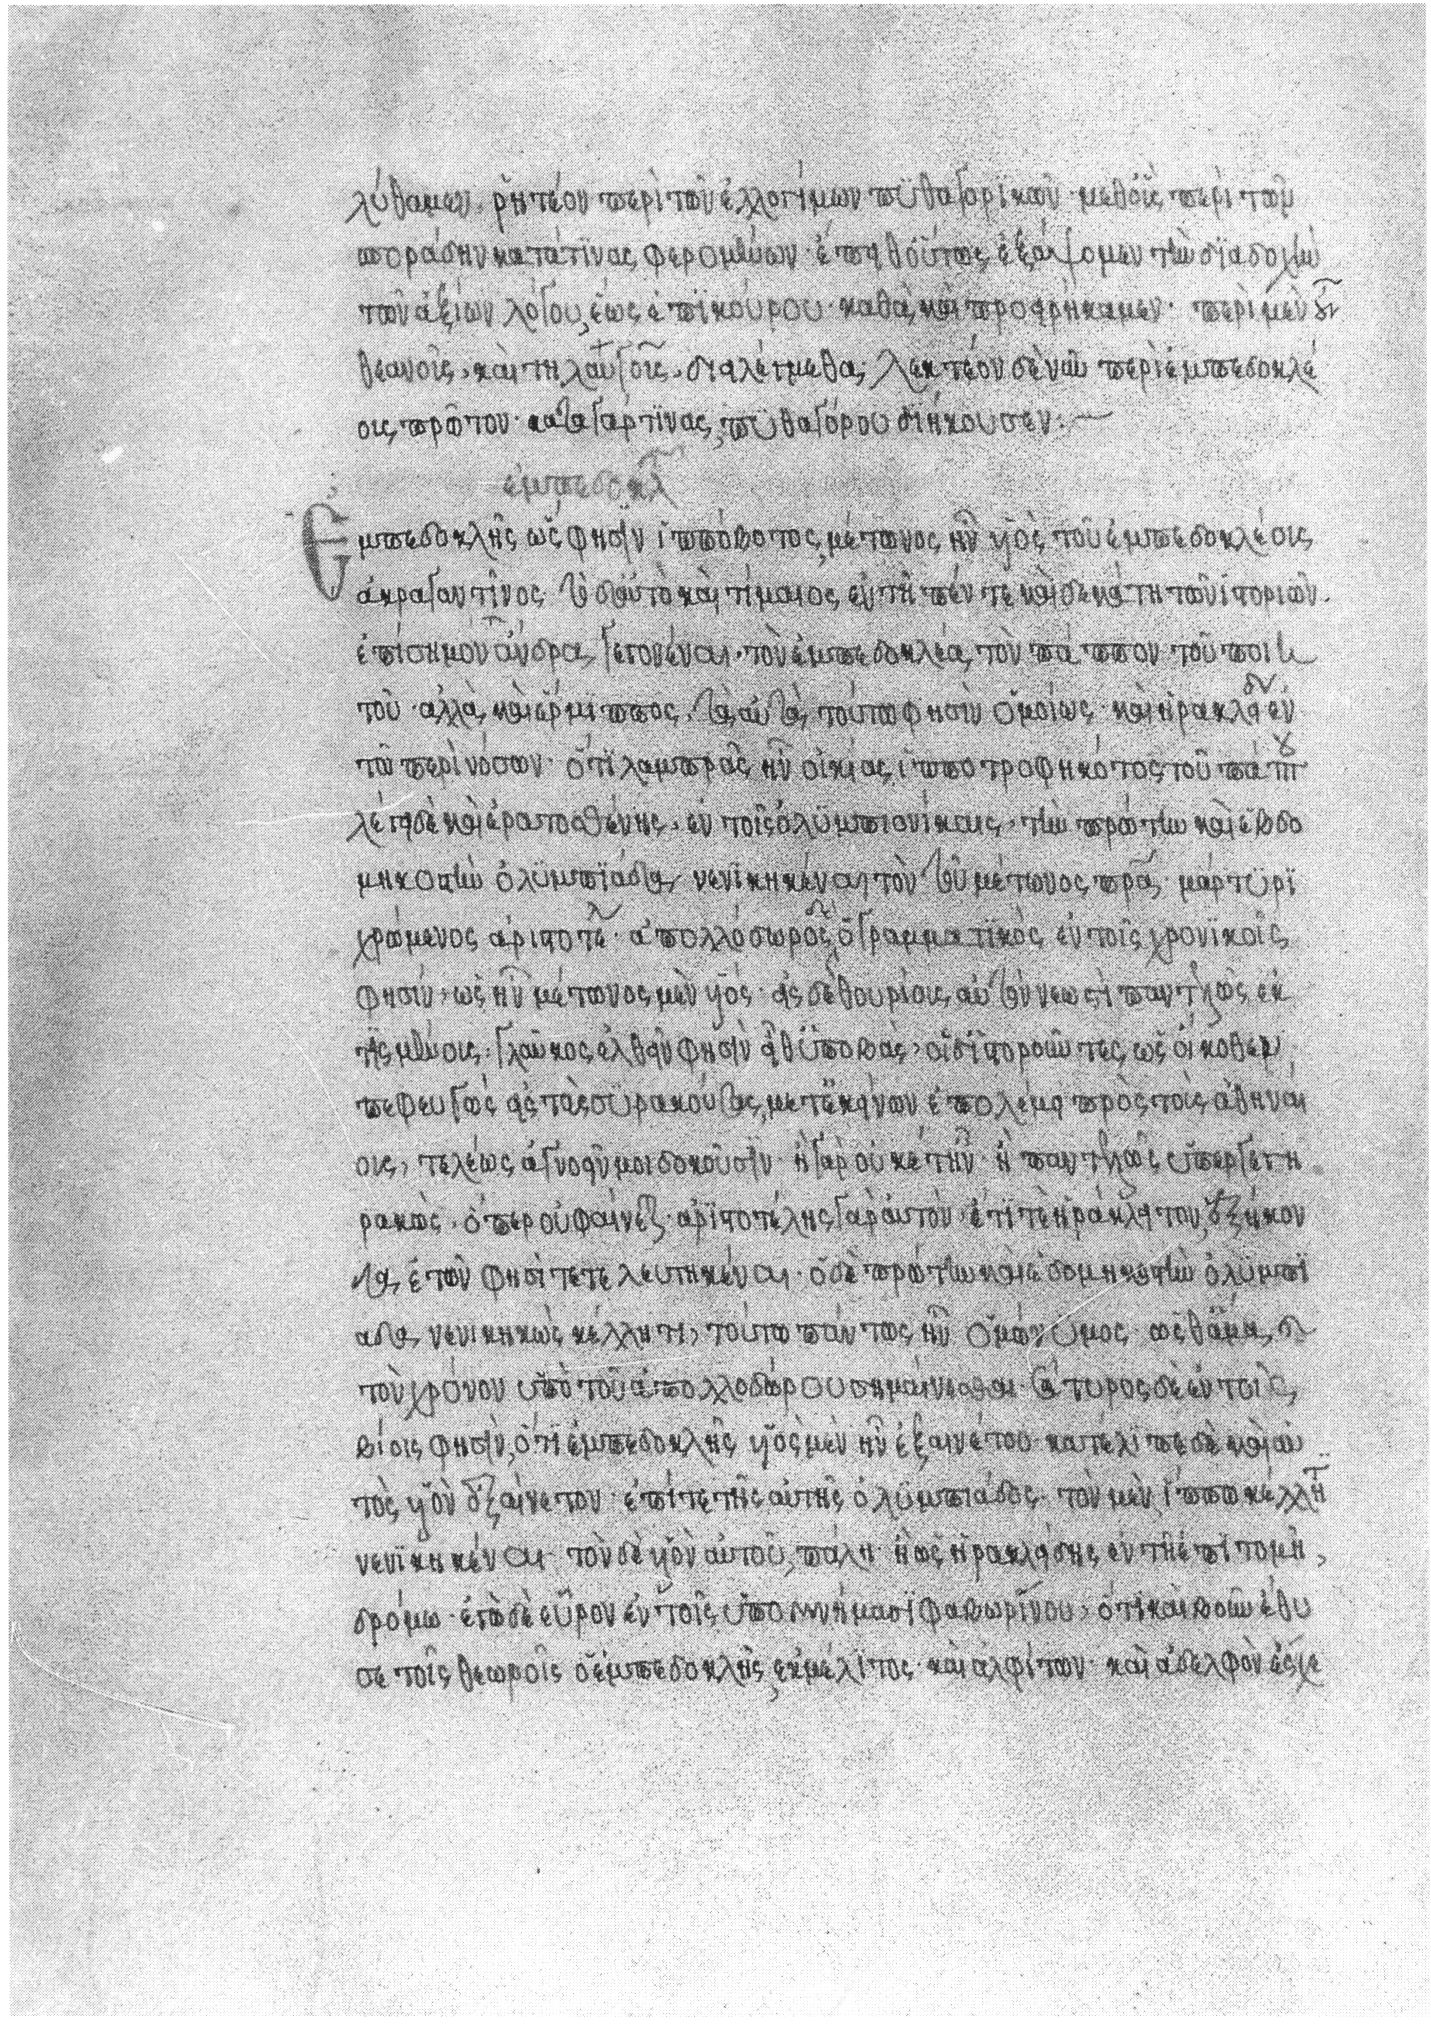 λύθαμεν. ῥητέον περὶ τῶν ἐλλογίμων πϋθαγορϊκῶν· μεθ' οἷς περὶ τῶν
σποράδην κατά τϊνας φερομένων· ἔπειθ' οὕτως ἐξάψομεν τὴν δϊαδοχὴν
τῶν ἀξίων λόγου, ἕως ἐπϊκούρου· καθὰ καὶ προειρήκαμεν· περὶ μὲν οὖν
θεανοῖς, καὶ τηλαυγοῖς. διειλέγμεθα, λεκτέον δὲ νῦν περὶ ἐμπεδοκλέ
οις πρῶτον· κατα γάρ τϊνας, πϋθαγόρου διήκουσεν:—
ἐμπεδοκλῆς
Ἐμπεδοκλῆς ὥς φησϊν ἱππόβοτος, μέτωνος ἦν υἱὸς τοῦ ἐμπεδοκλέοις
ἀκραγαντῖνος. τὸ δ' αὐτὸ καὶ τίμαιος, ἐν τῆ πέντε καὶ δεκάτη τῶν ἱστοριῶν.
ἐπίσημον ἄνδρα γεγονέναι. τὸν ἐμπεδοκλέα, τὸν πάππον τοῦ ποιη
τοῦ· ἀλλὰ καὶ ἕρμιππος. τὰ αὐτὰ τούτω φησὶν ὁμοίως· καὶ ἡρακλείδης ἐν
τῶ περὶ νόσων· ὅτϊ λαμπρᾶς ἦν οἰκίας ἱπποτροφηκότος τοῦ πάππου
λέγει δὲ καὶ ἐρατοσθένης. ἐν τοῖς ὀλϋμπιονίκαις, τὴν πρώτην καὶ ἑβδο
μηκοστὴν ὀλϋμπϊάδα, νενϊκηκέναι τὸν τοῦ μέτωνος πρα. μάρτϋρϊ
χρώμενος ἀριστοτέλει· ἀπολλόδωρος δ' ὁ γραμματϊκὸς ἐν τοῖς χρονϊκοῖς
φησὶν, ὡς ἦν μέτωνος μὲν υἱός· εἰς δὲ θουρίοις, αὐτὸν νεωστὶ παντελῶς ἐκ
τισμένοις. γλαῦκος ἐλθεῖν φησϊν εἶθ' ὑποβὰς, οἱ δ' ἱστοροῦντες, ὡς οἴκοθεν
πεφευγὼς εἰς τὰς σϋρακούσας, μετ' ἐκείνων ἐπολέμει πρὸς τοὶς ἀθηναί
οις, τελέως ἀγνοεῖν μοι δοκοῦσϊν· ἢ γὰρ οὐκέτ' ἦν· ἢ παντελῶς ὑπεργεγη
ρακὼς. ὅπερ οὐ φαίνεται· ἀρϊστοτέλης γὰρ αὐτὸν· ἔτϊ τὲ ἡράκλειτον, ἑξήκον
τα, ἐτῶν φησὶ τετελευτηκέναι· ὁ δὲ πρώτην καὶ ἑδομηκοστὴν ὀλϋμπϊ
άδα, νενικηκὼς κέλλητι, τούτω πάντως ἦν ὁμώνϋμος· ὡς θ' ἅμα,
τὸν χρόνον ὑπὸ τοῦ ἀπολλοδώρου σημαίνεσθαι· σάτυρος δὲ ἐν τοῖς
βίοις φησϊν, ὅτϊ ἐμπεδοκλῆς υἱὸς μὲν ἦν ἐξαινέτου· κατέλϊπε δὲ καὶ αὐ
τὸς υἱὸν ἐξαίνετον· ἐπί τε τῆς αὐτῆς ὀλϋμπιάδος. τὸν μὲν ἵππω κέλλητι
νενϊκηκέναι· τὸν δὲ υἱὸν αὐτοῦ, πάλη· ἢ ὡς ἡρακλείδης, ἐν τῆ ἐπϊτομῆ,
δρόμω· ἐγὼ δὲ εὗρον ἐν τοῖς ὑπομνήμασϊ φαβωρίνου, ὅτϊ καὶ βοῦν ἔθυ
σε τοῖς θεωροῖς ὁ ἐμπεδοκλῆς, ἐκ μέλϊτος· καὶ ἀλφίτων· καὶ ἀδελφὸν ἔσχε